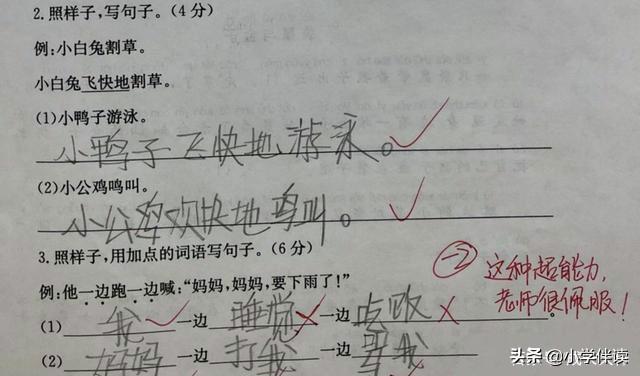 2.照样子,写句子。(4分)
例:小白兔割草。
小白兔飞快地割草。
(1)小鸭子游泳。
小鸭子飞快地游泳。
(2)小公鸡鸣叫。
小公鸡欢快地鸣叫。
3.照样子,用加点的词语写句子。(6分)
例:他一边跑一边喊:“妈妈,妈妈,要下雨了!”
(1) 我 一边 睡觉 一边 。
(2) 妈妈 一边 打我 一边 骂我
-2 这种超能力,
老师很佩服!
头条 @小学伴读